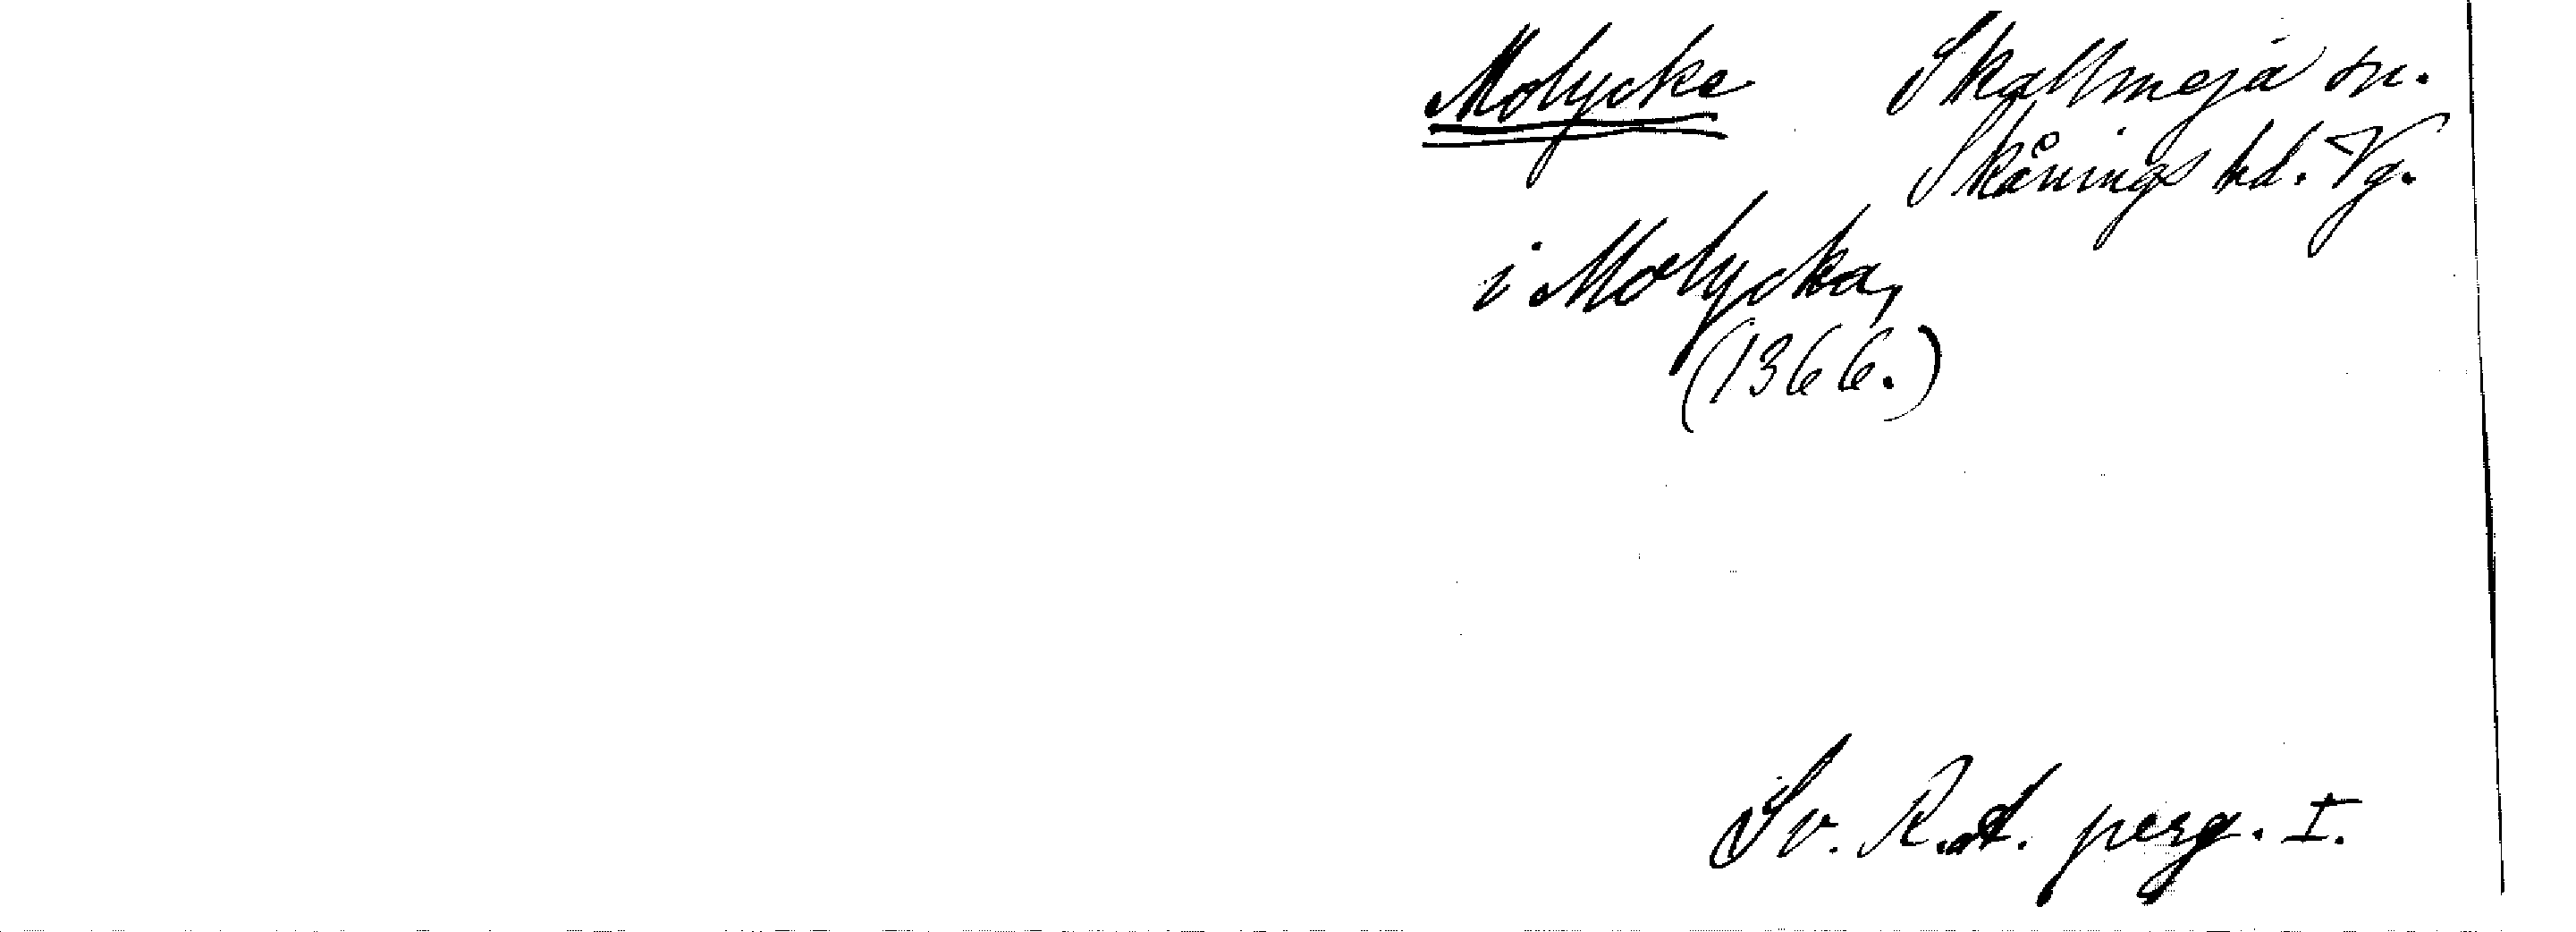 Molycke Skallmeja sn.
Skånings hd. Vg.
i Molycka,
(1366.)
Sv. R.A. perg. I.